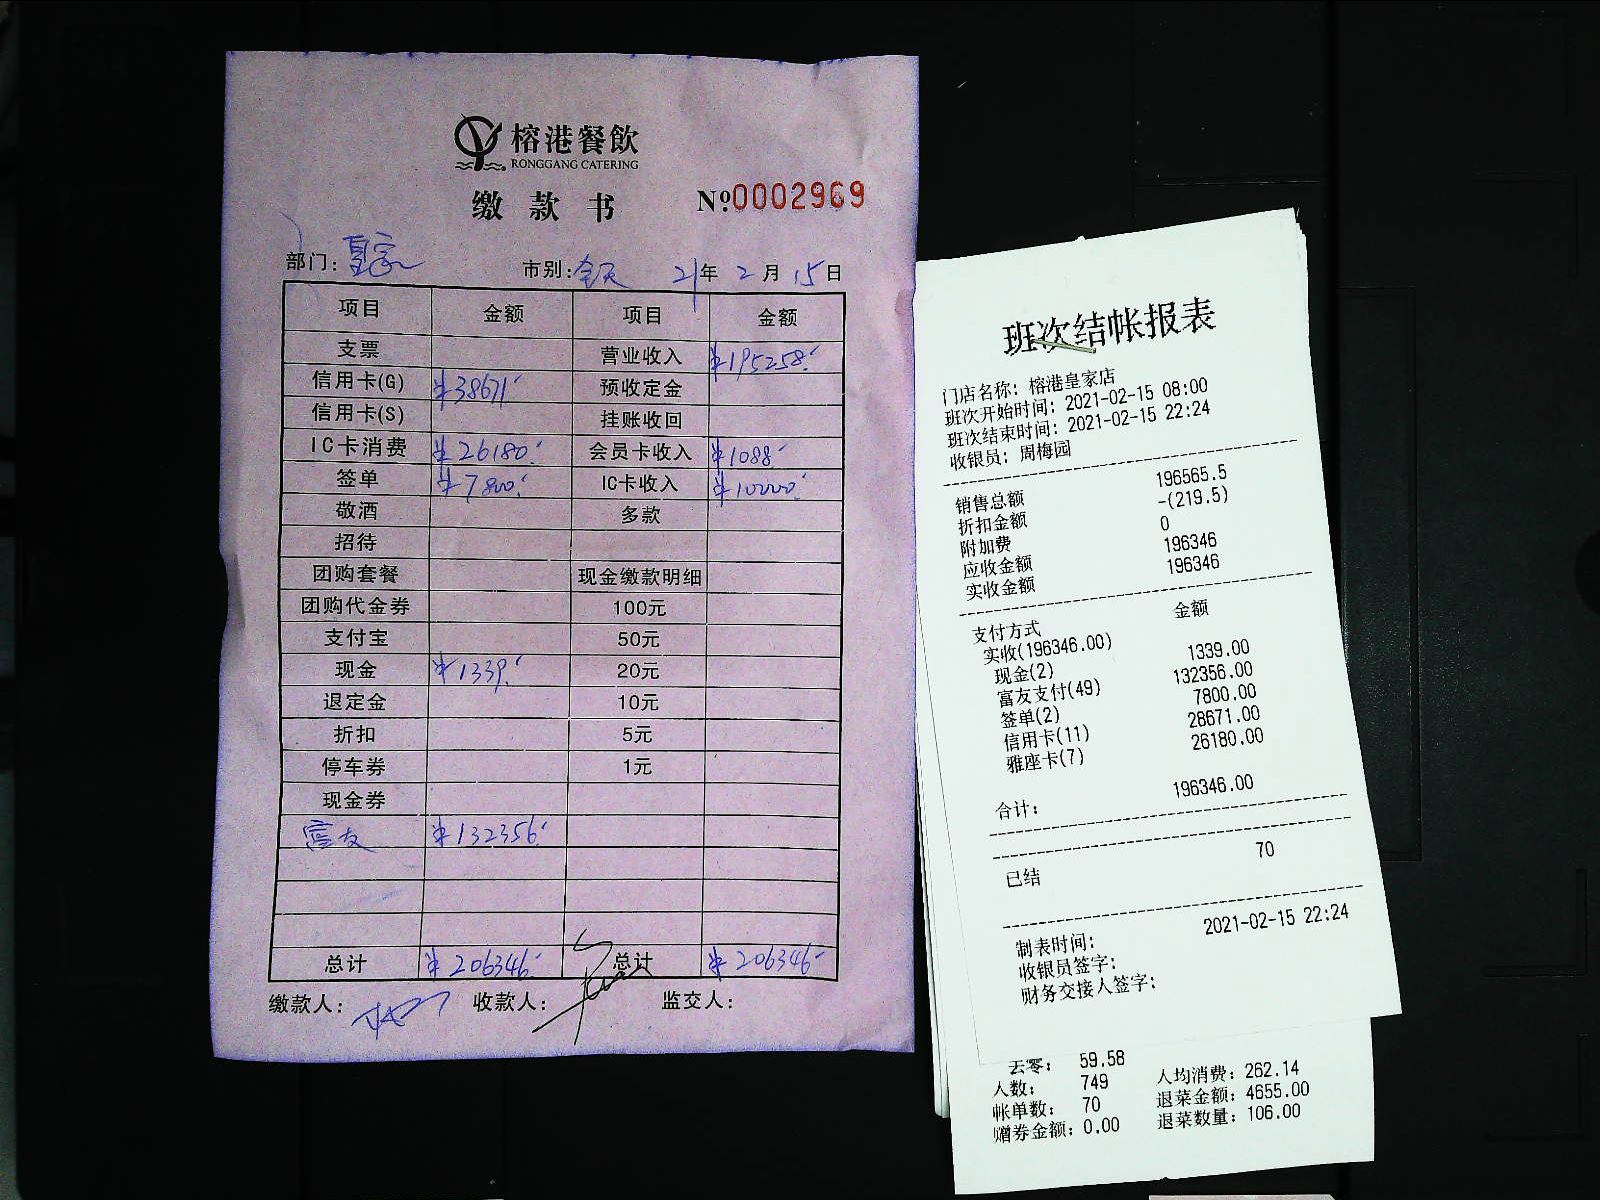 榕港餐飲
RONGGANG CATERING
缴款书 №0002969
部门: 皇家 市别: 全天 21年 2月 15日
项目 金额 项目 金额
支票 营业收入 ¥195258.
信用卡(G) ¥38671 预收定金
信用卡(S) 挂账收回
IC卡消费 ¥26180. 会员卡收入 ¥1088
签单 ¥7800. IC卡收入 ¥10000.
敬酒 多款
招待
团购套餐 现金缴款明细
团购代金券 100元
支付宝 50元
现金 ¥1339. 20元
退定金 10元
折扣 5元
停车券 1元
现金券
富友 ¥132356.
总计 ¥206346. 总计 ¥206346
缴款人: 收款人: 监交人:
班次结帐报表
门店名称: 榕港皇家店
班次开始时间: 2021-02-15 08:00
班次结束时间: 2021-02-15 22:24
收银员: 周梅园
销售总额 196565.5
折扣金额 -(219.5)
附加费 0
应收金额 196346
实收金额 196346
支付方式 金额
实收(196346.00)
现金(2) 1339.00
富友支付(49) 132356.00
签单(2) 7800.00
信用卡(11) 28671.00
雅座卡(7) 26180.00
合计: 196346.00
已结 70
制表时间: 2021-02-15 22:24
收银员签字:
财务交接人签字:
去零: 59.58
人数: 749 人均消费: 262.14
帐单数: 70 退菜金额: 4655.00
赠券金额: 0.00 退菜数量: 106.00